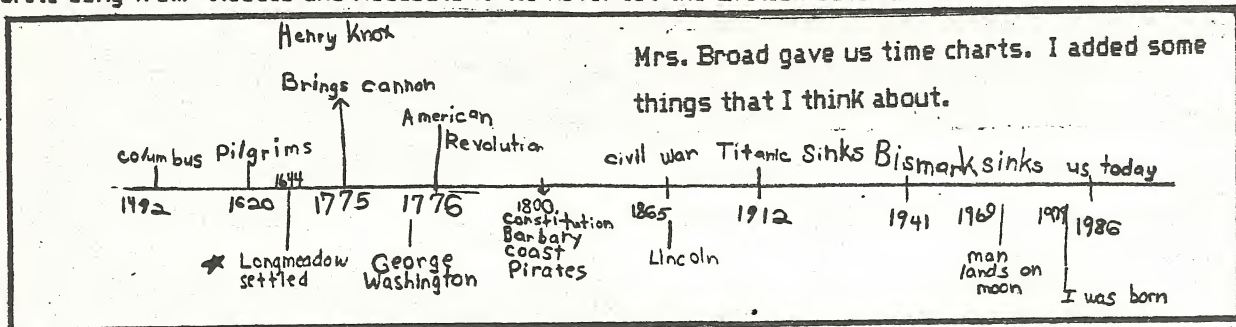 Henry Knox
Brings cannon
Mrs. Broad gave us time charts. I added some
things that I think about.
American
Revolution
columbus Pilgrims
civil war Titanic Sinks Bismark sinks us today
1644
1492 1620 1775 1776 1800 1865 1912 1941 1969 1986
★ Longmeadow
settled
George
Washington
Constitution
Barbary
Coast
Pirates
Lincoln
man
lands on
moon
I was born